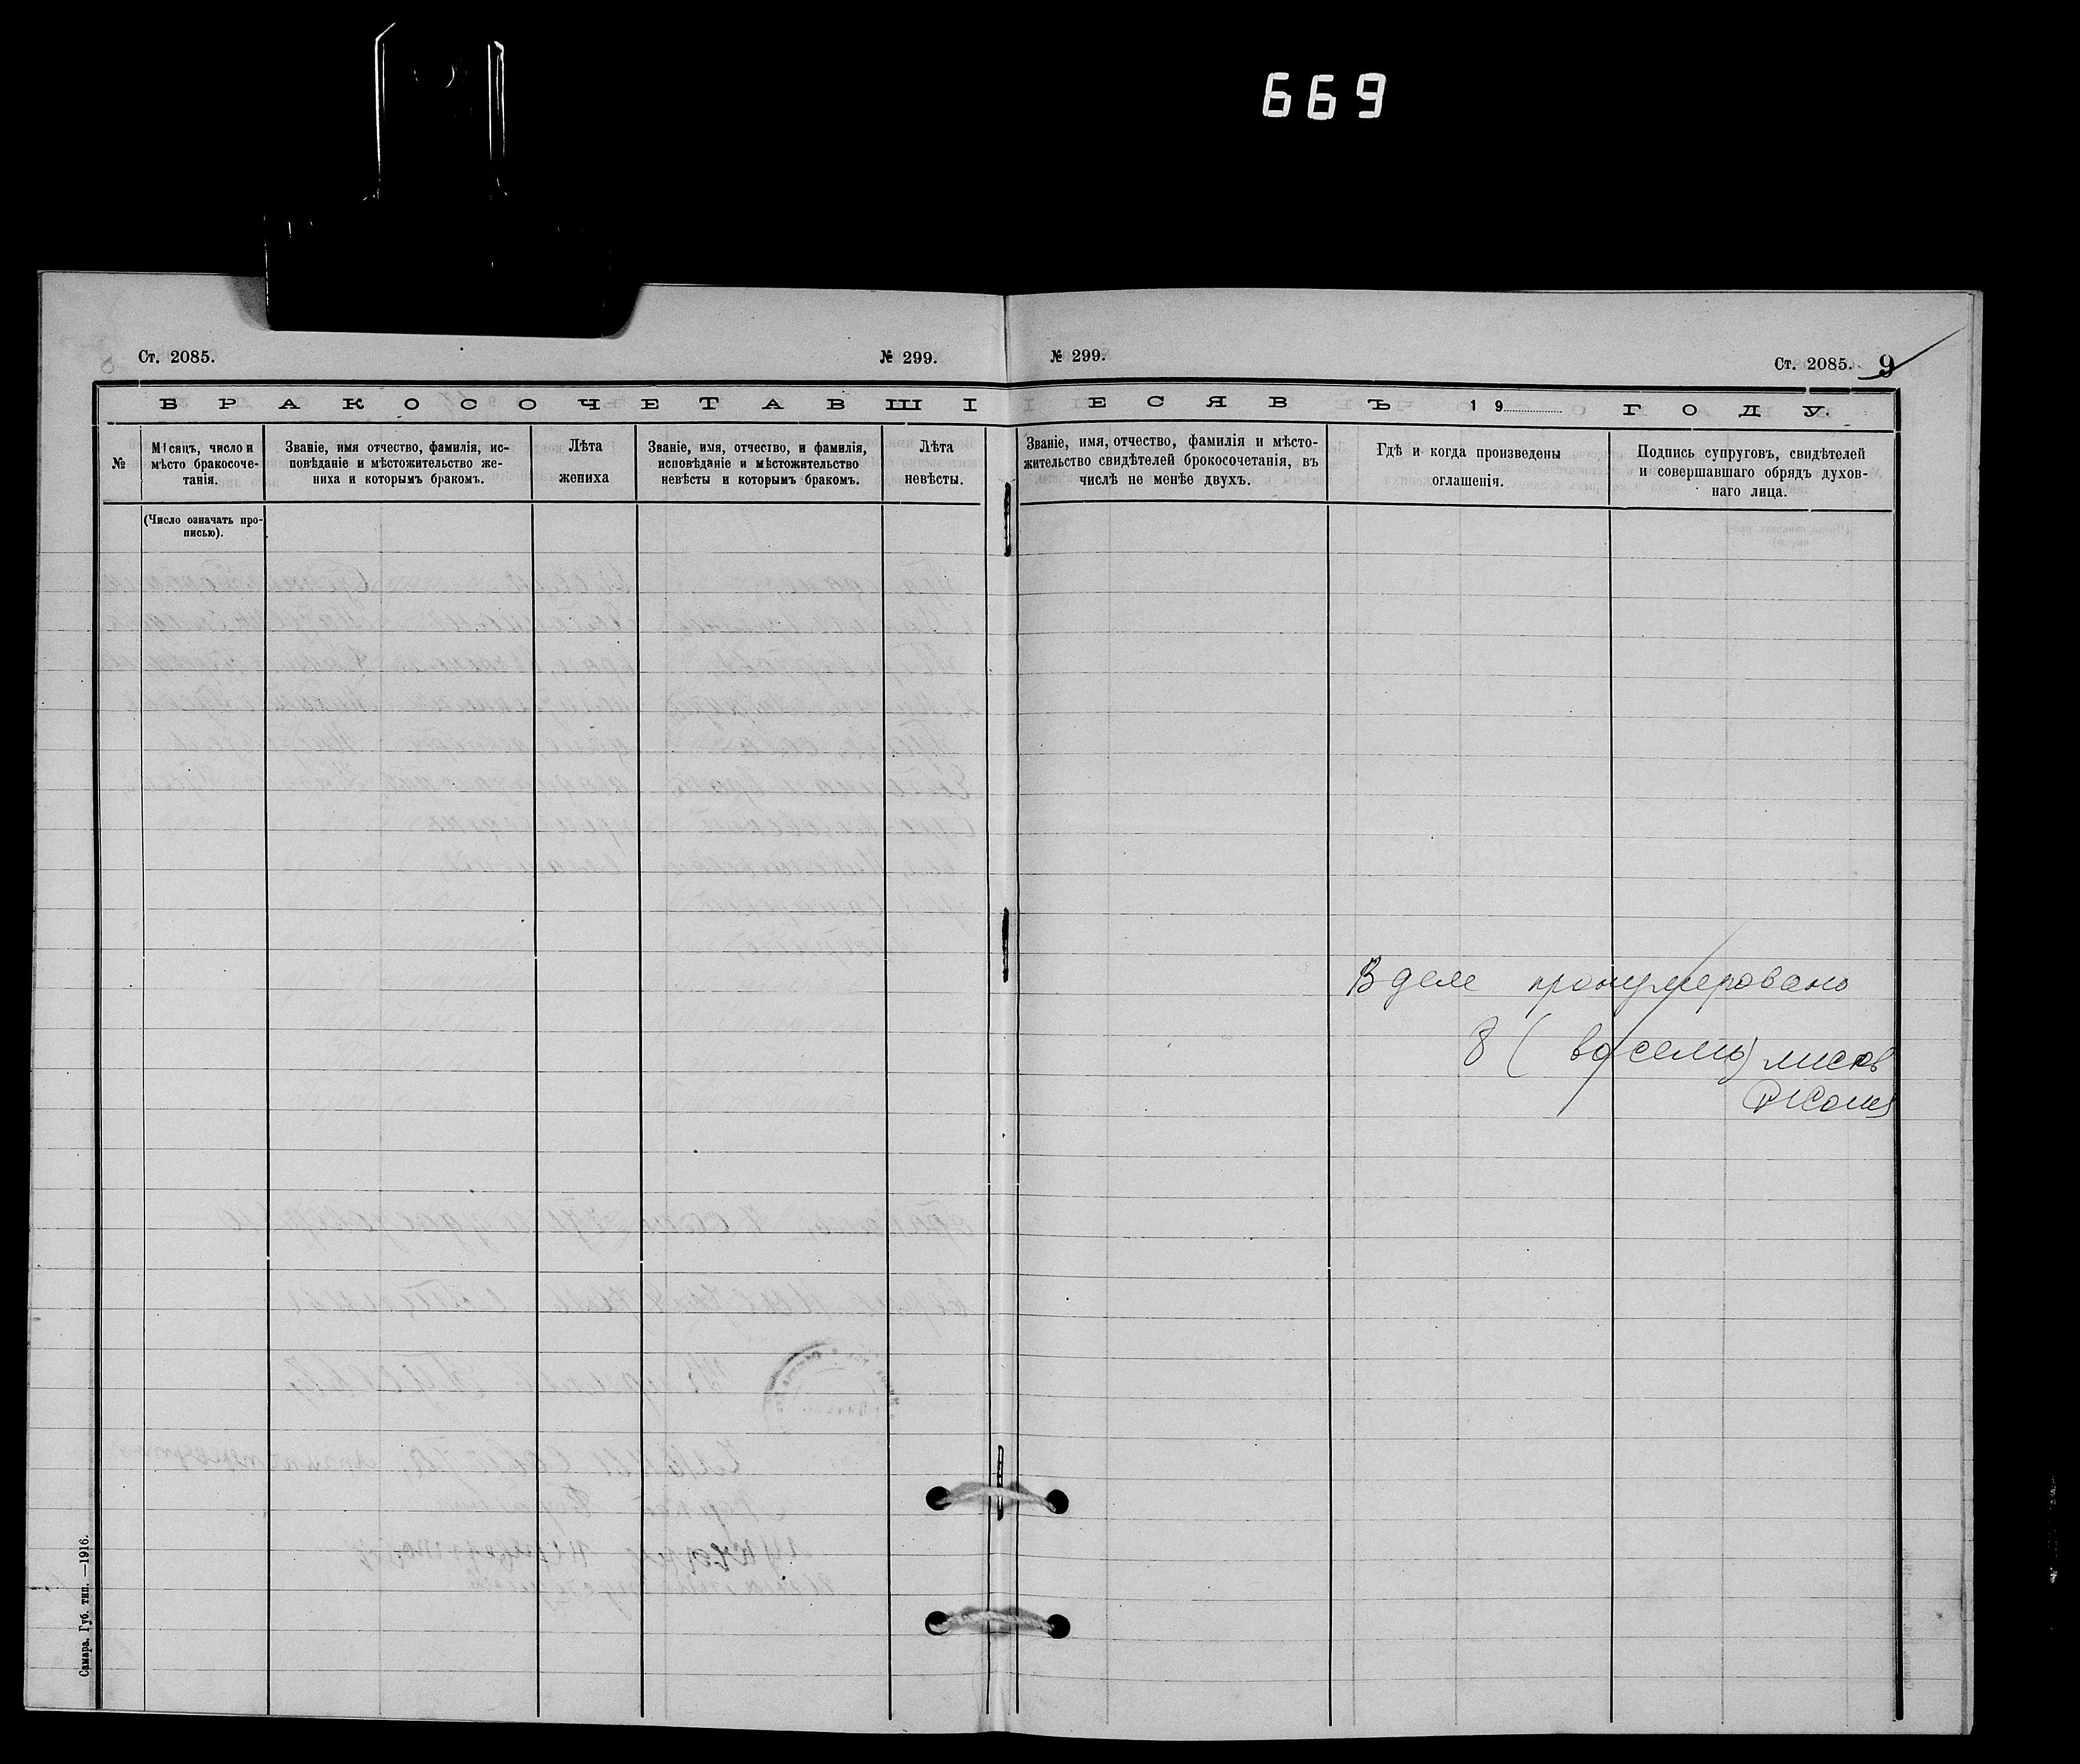 669
Ст. 2085.
№ 299.
№ 299.
Ст. 2085. 9
БРАКОСОЧЕТАВШІ
ЕСЯ ВЪ 19 ГОДУ.
№
Мѣсяцъ, число и
мѣсто бракосоче-
танія.
Званіе, имя отчество, фамилія, ис-
повѣданіе и мѣстожительство же-
ниха и которымъ бракомъ.
Лѣта
жениха
Званіе, имя, отчество, и фамилія,
исповѣданіе и мѣстожительство
невѣсты и которымъ бракомъ.
Лѣта
невѣсты.
Званіе, имя, отчество, фамилія и мѣсто-
жительство свидѣтелей брокосочетанія, въ
числѣ не менѣе двухъ.
Гдѣ и когда произведены
оглашенія.
Подпись супруговъ, свидѣтелей
и совершавшаго обрядъ духов-
наго лица.
(Число означать про-
писью).
В деле пронумеровано
8 (восемь) лисов
Самара. Губ. тип. —1916.